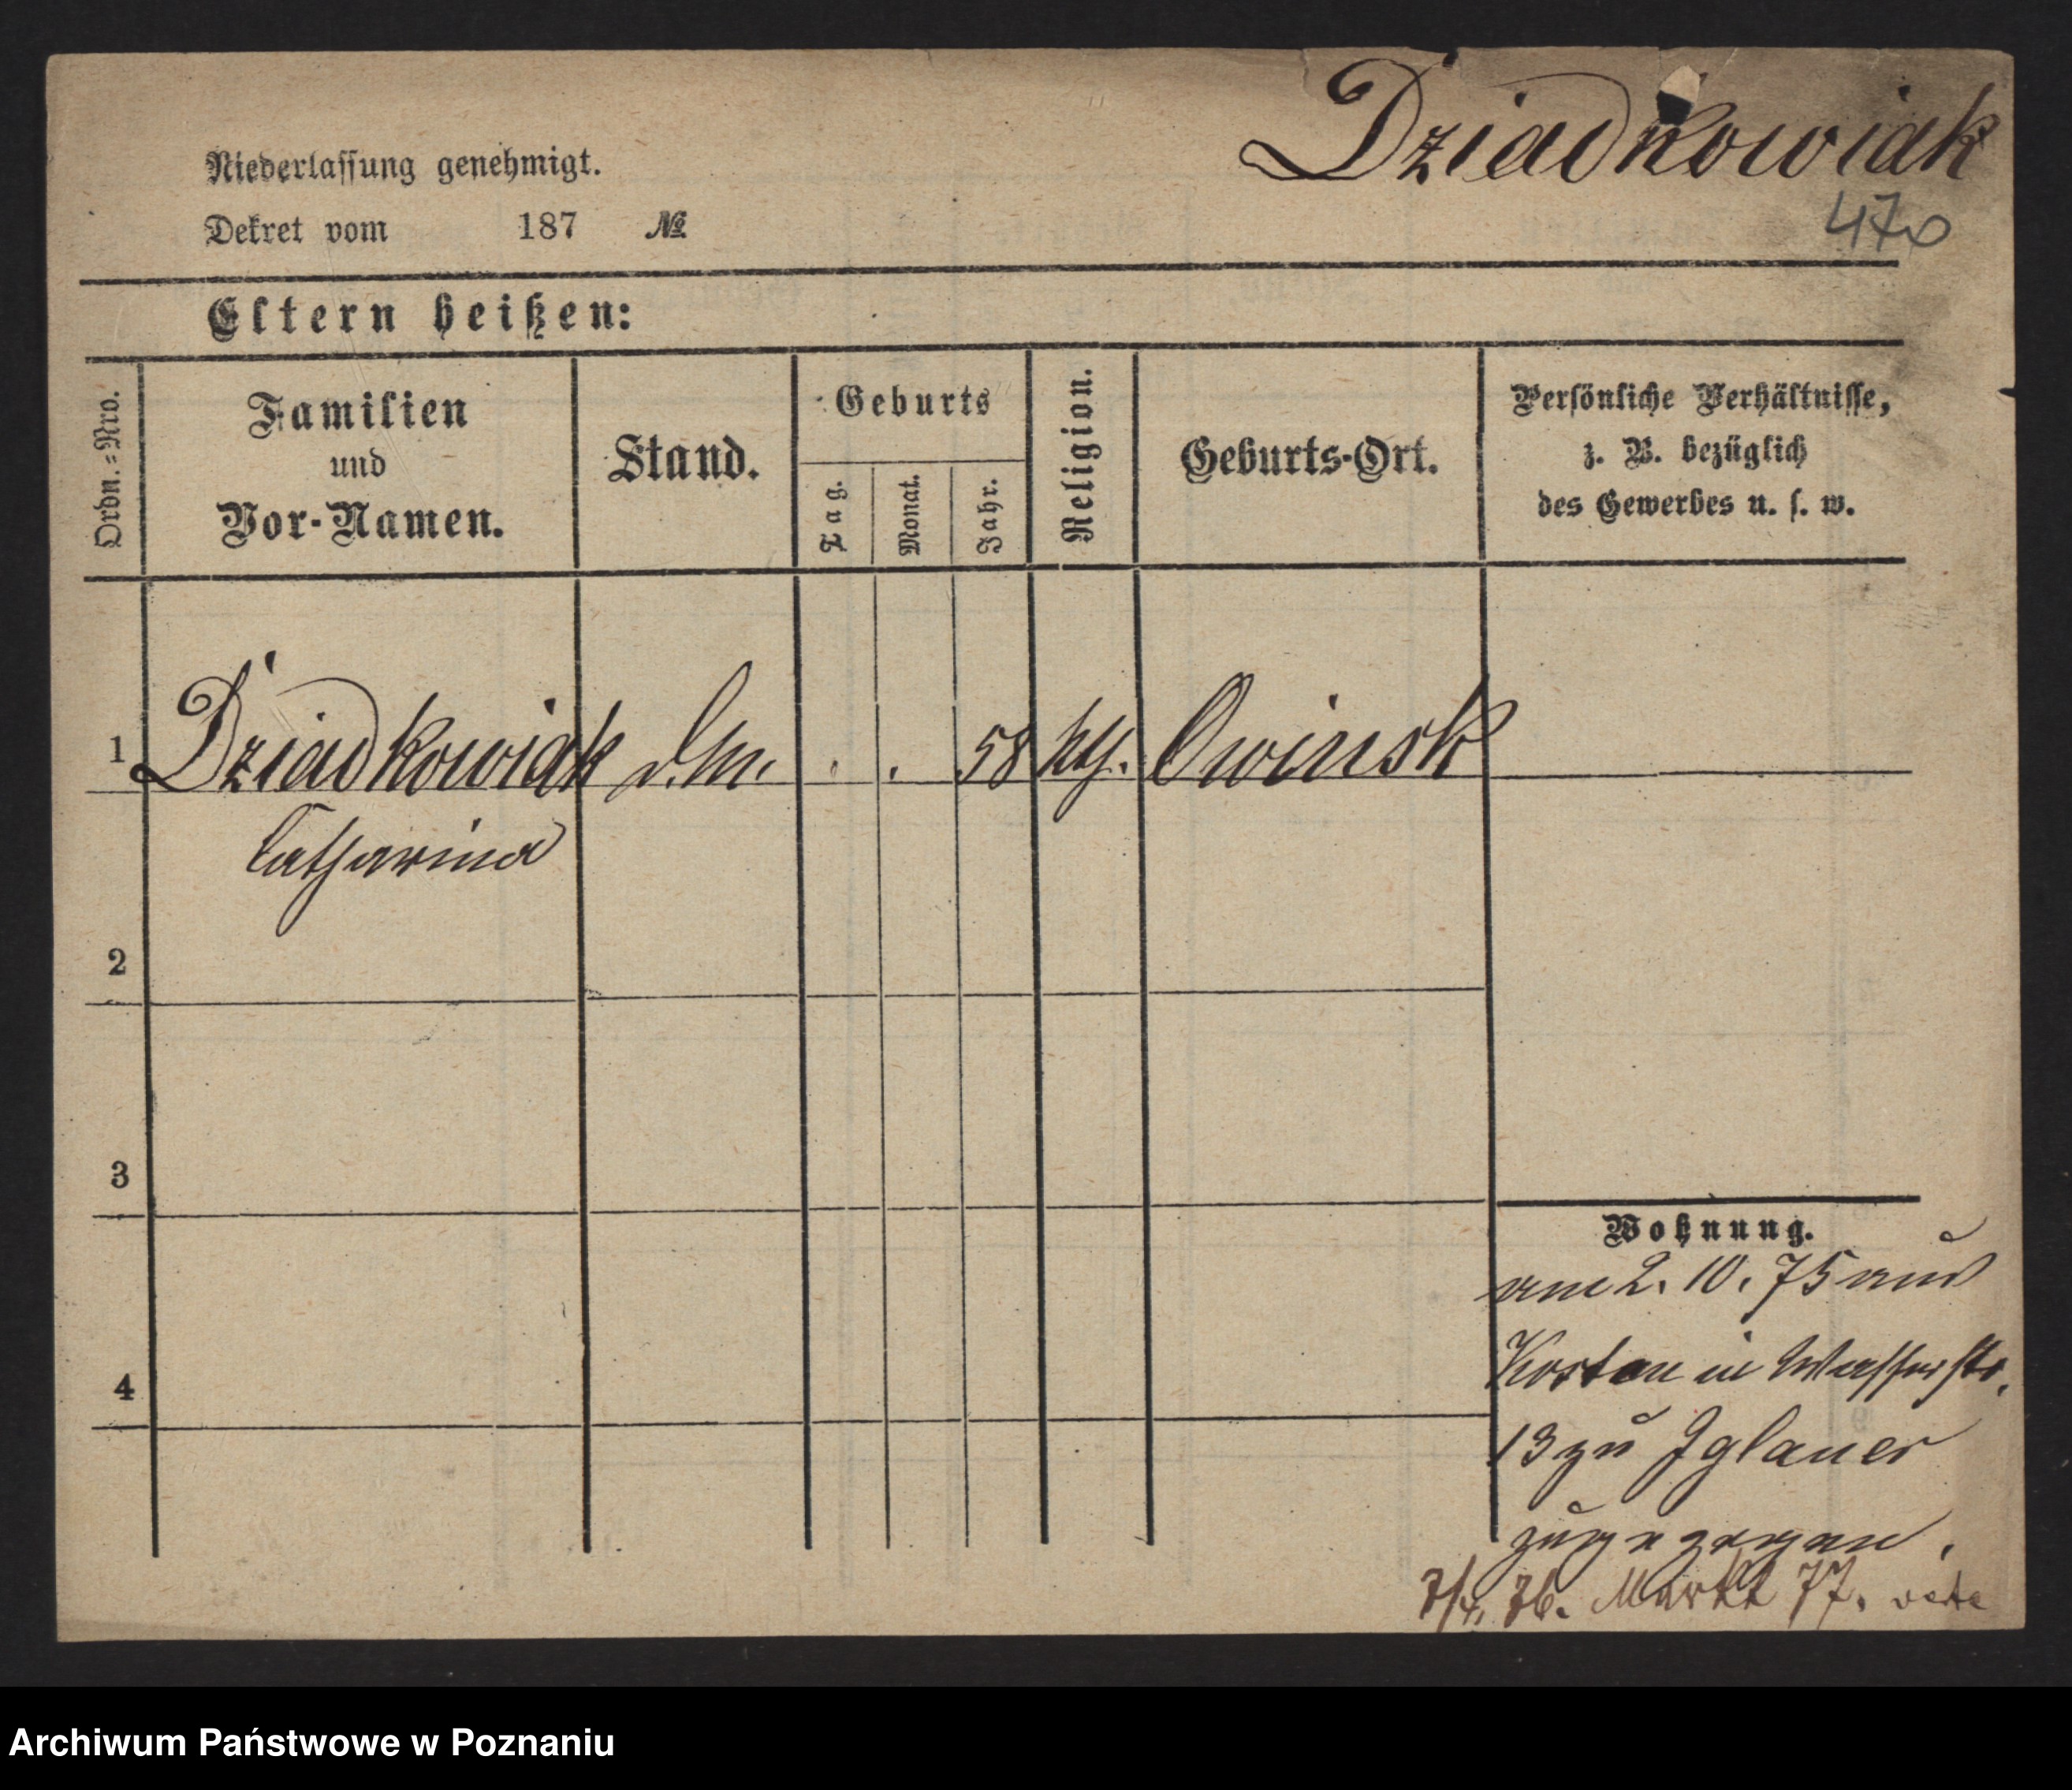 Dziadkowiak
470
Niederlassung genehmigt.
Dekret vom 187 №
Eltern heißen:
Ordn.=Nro.
Familien
und
Vor-Namen.
Stand.
Geburts
Tag.
Monat.
Jahr.
Religion.
Geburts-Ort.
Persönliche Verhältnisse,
z. B. bezüglich
des Gewerbes u. s. w.
1 Dziadkowiak d. M. . . 58 kth. Owinsk
Catharina
2
3
4
Wohnung.
am 2. 10. 75 aus
Kosten in Wasserstr.
13 zu Iglauer
zugezogen.
76. Markt 77.
Archiwum Państwowe w Poznaniu